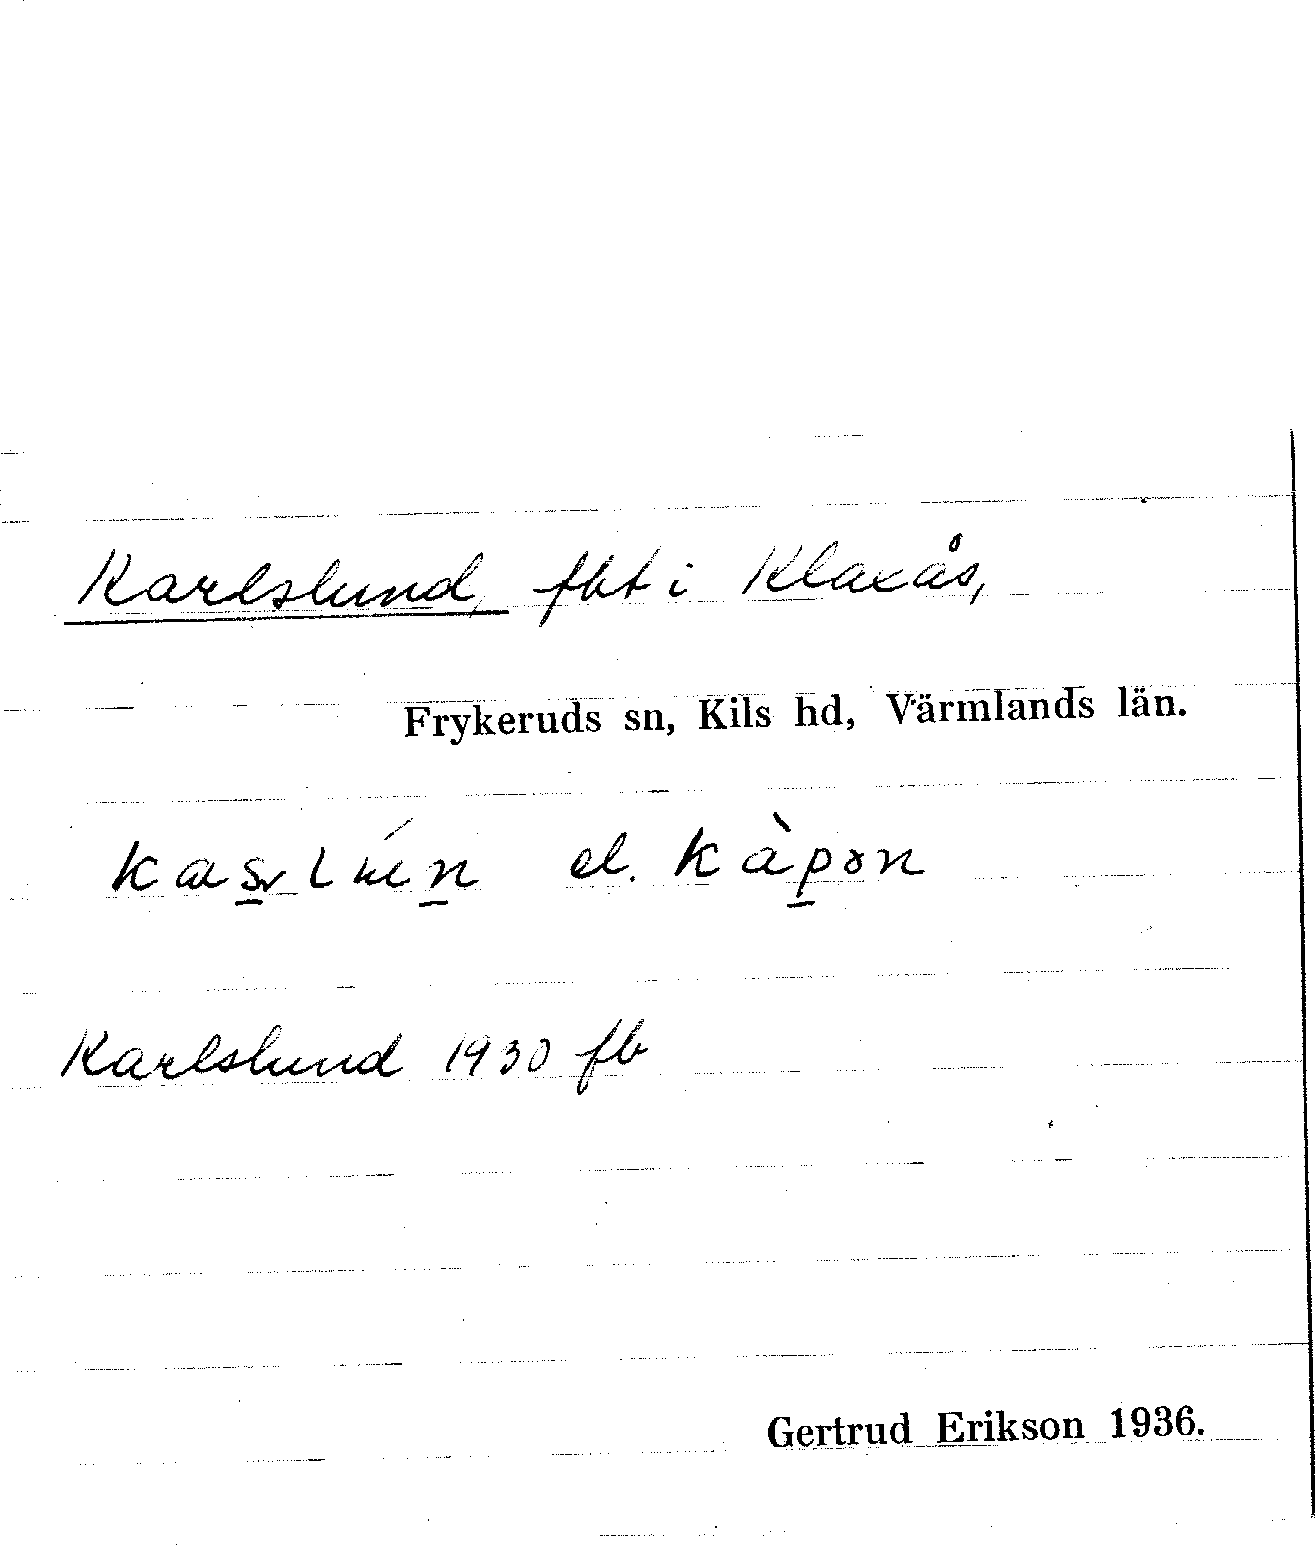 Karlslund, fbt i Klaxås,
Frykeruds sn, Kils hd, Värmlands län.
el.
Karlslund 1930 fb
Gertrud Erikson 1936.